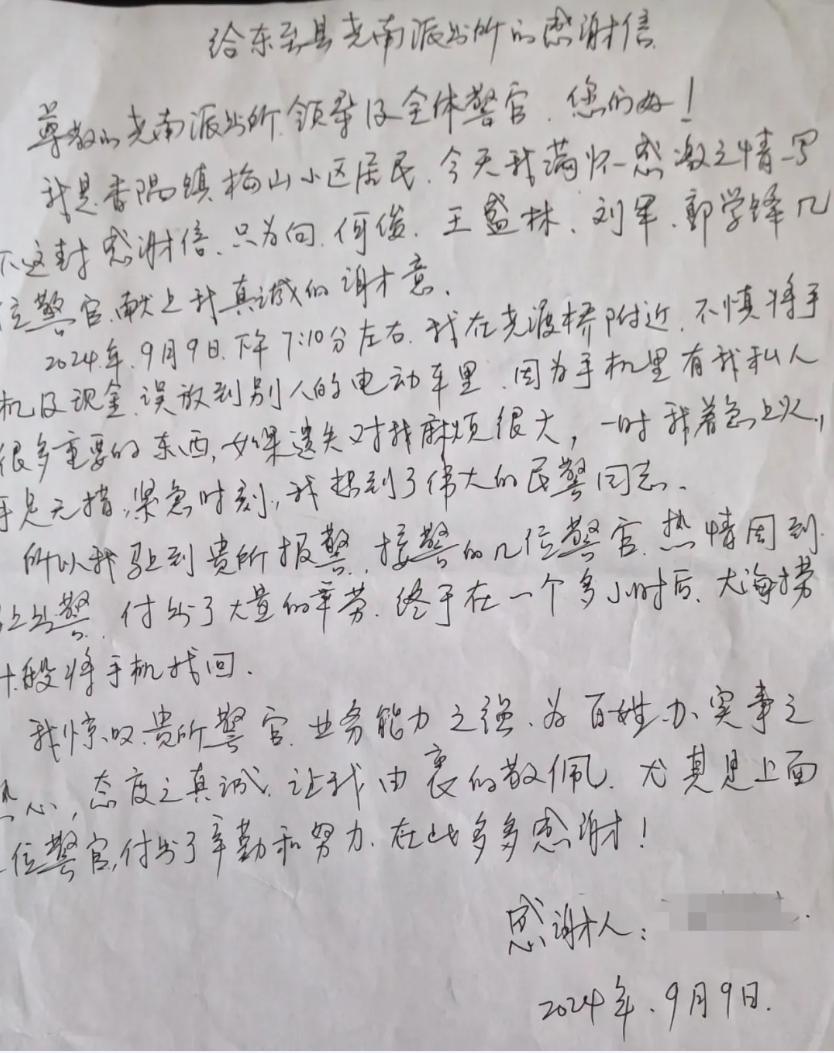 给东至县尧南派出所的感谢信
尊敬的尧南派出所领导及全体警官、您们好！
我是香隅镇梅山小区居民、今天我满怀感激之情写
下这封感谢信、只为向、何俊、王盛林、刘军、郭学锋几
位警官、献上我真诚的谢意、
2024年、9月9日、下午7:10分左右、我在尧渡桥附近、不慎将手
机及现金、误放到别人的电动车里、因为手机里有我私人
很多重要的东西，如果遗失对我麻烦很大，一时我着急上火，
手足无措，紧急时刻，我想到了伟大的民警同志、
所以我马上到贵所报警、接警的几位警官、热情周到、
出警、付出了大量的辛劳、终于在一个多小时后、大海捞
般将手机找回、
我惊叹、贵所警官、业务能力之强、为百姓办实事之
热心，态度之真诚、让我由衷的敬佩、尤其是上面
位警官，付出了辛勤和努力、在此多多感谢！
感谢人：
2024年、9月9日、